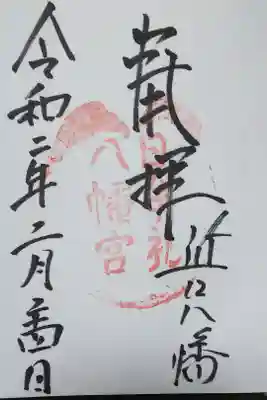 奉拝
近江八幡
日牟礼
八幡宮
令和二年二月廿四日